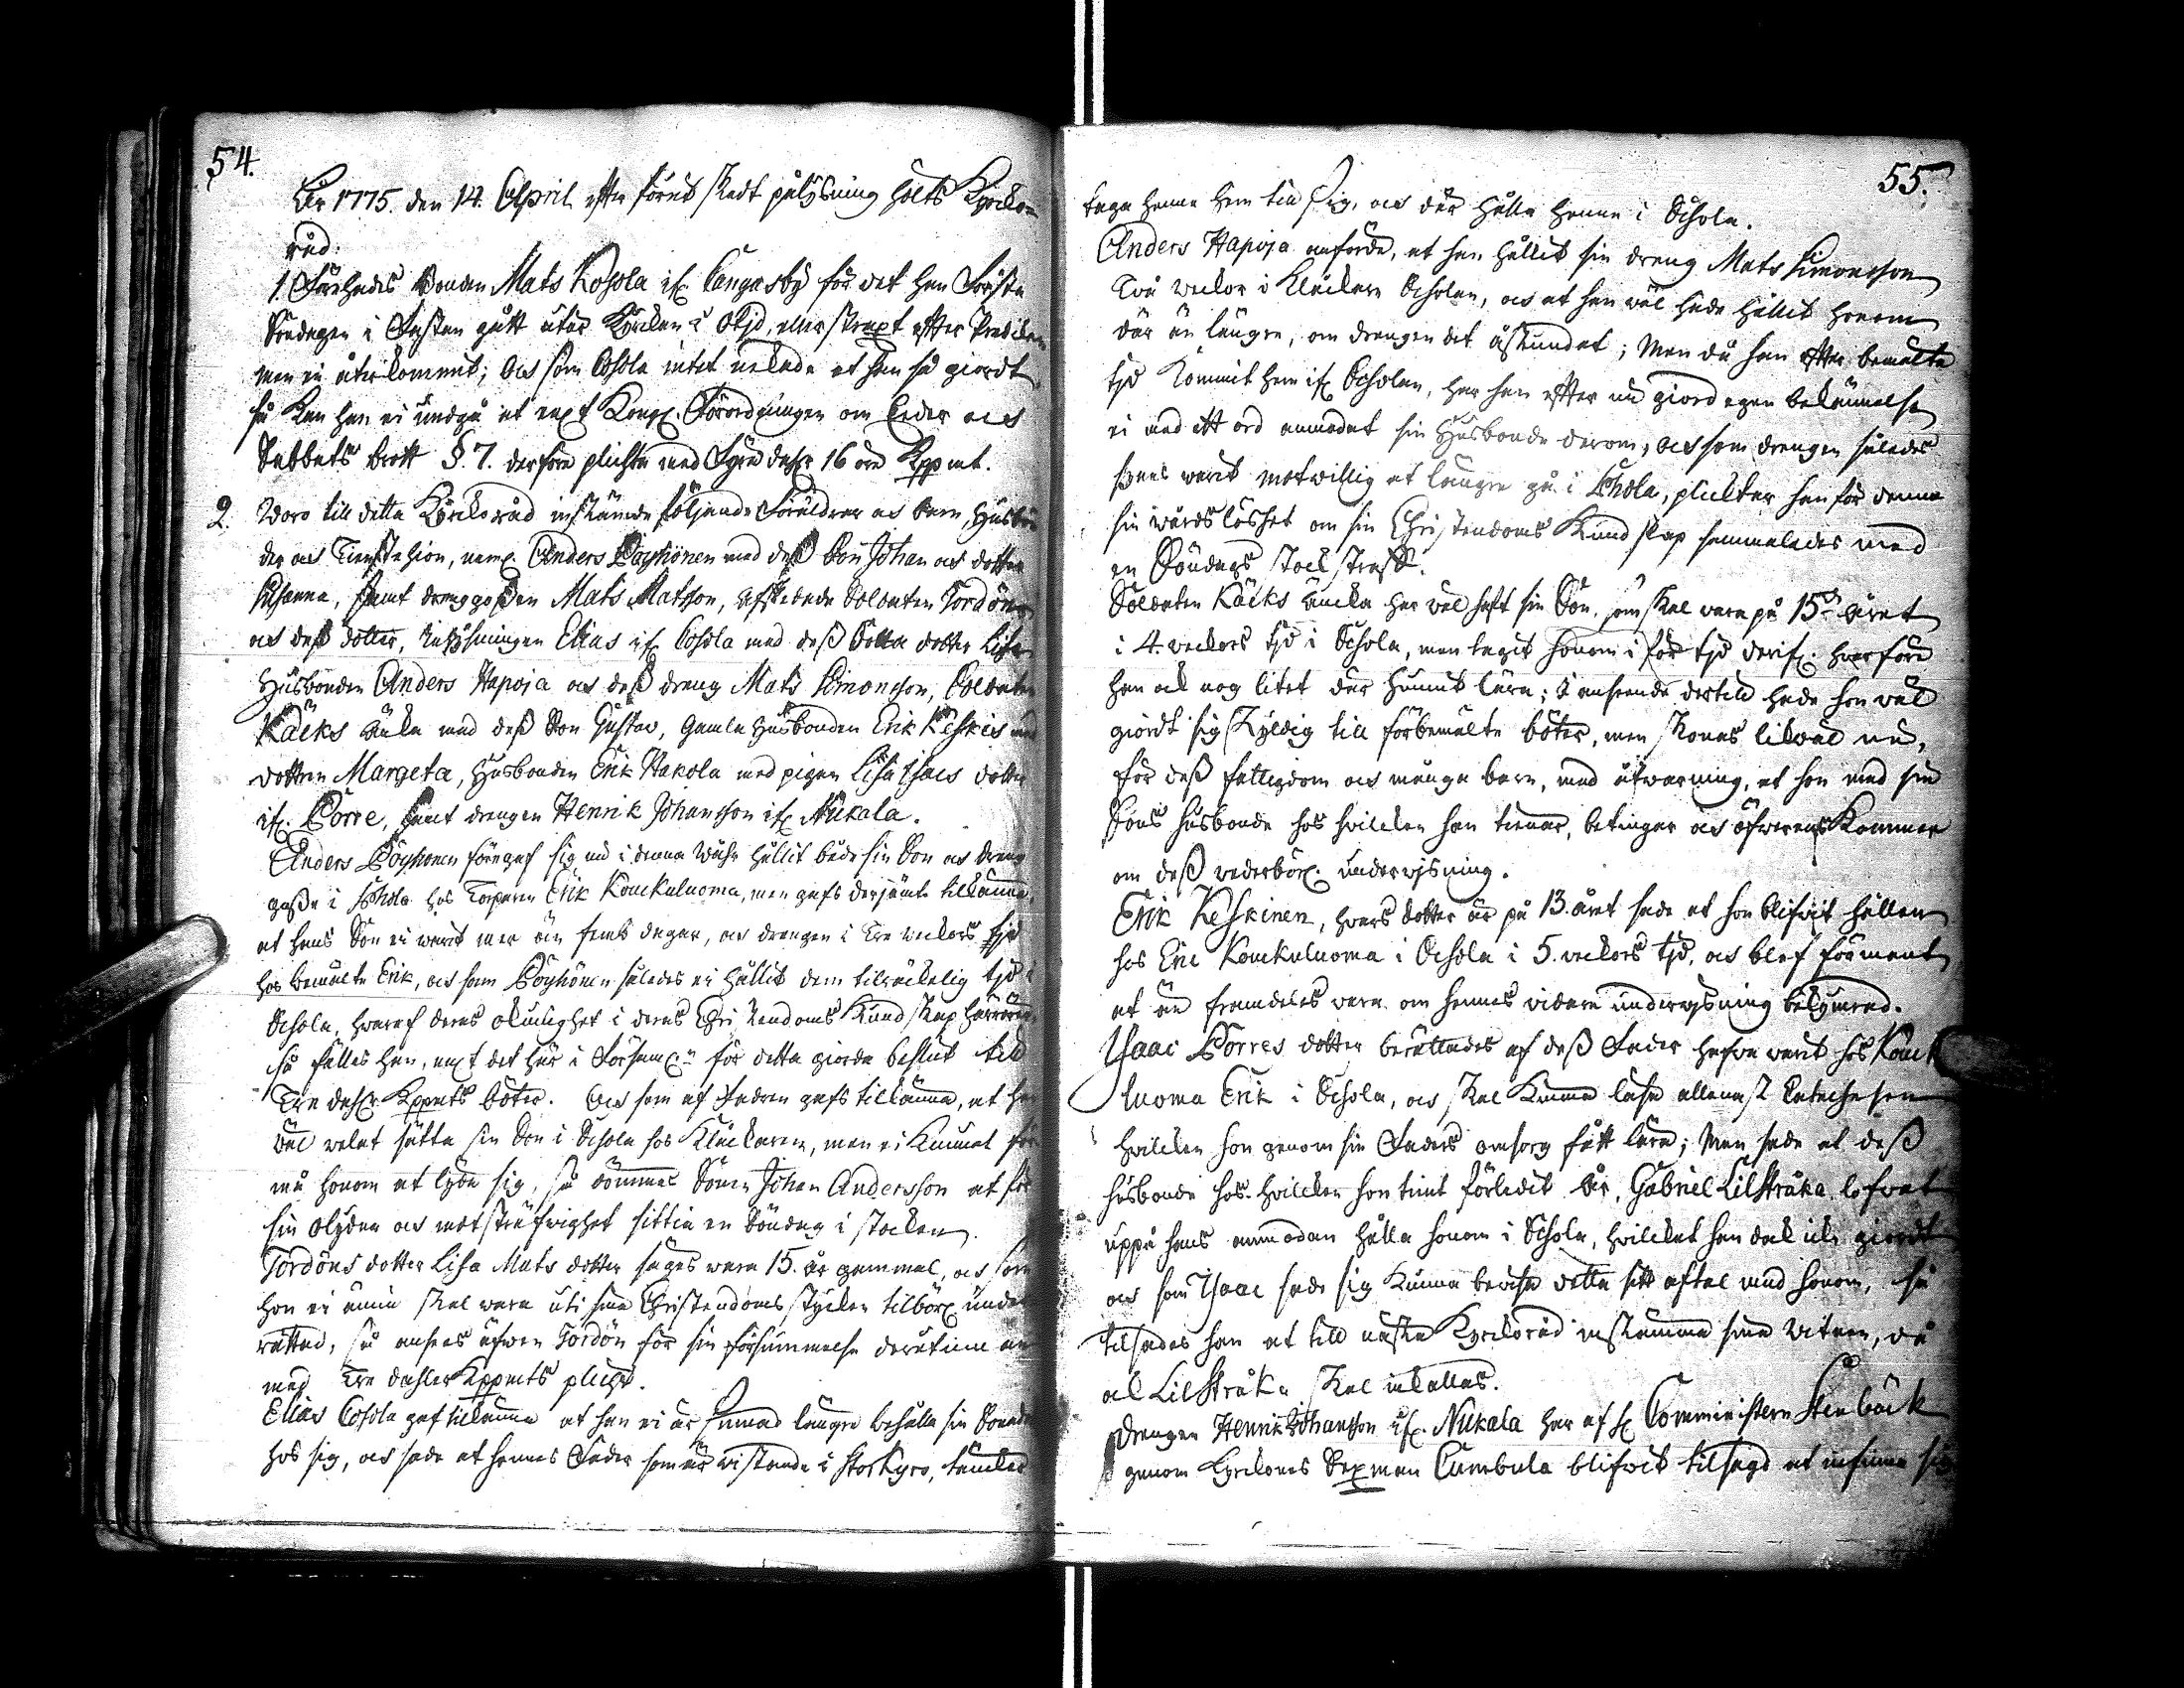 54.
År 1775. den 14. April efter förut skedt pålysning hölts Kyrcko
råd.
1. Förehades Bonden Mats Kosola ifr. Cangasby för det han Första
Söndagen i Fastan gått utur Kyrckan i otijd, eller straxt efter Predikan
men ei återkommit; Och som Cosola intet nekade at han så giordt,
så kan han ei undgå at enl. Kongl. Förordningen om Eder och
Sabbats brott §. 7. derföre plichta med Fyra dahlr 16 öre Kppmt.
2. Woro till detta Kyrckoråd instämde följande Föräldrar och barn, Husbön
der och Tienstehion, neml. Anders Pöyhönen med dess Son Johan och dotter
Susanna, samt drenggossen Mats Matsson, afskedade Soldaten Tordön
och dess dotter, Inhysningen Elias ifr. Cosola med dess Dotter dotter Lisa
Husbonden Anders Hapoja och dess dreng Mats Simonsson, Soldaten
Käcks Enka med dess Son Gustav, Gamla Husbonden Erik Keskis med
dottren Margeta, Husbonden Erik Hakola med pigan Lisa Isacs dotter
ifr. Porre, samt drengen Henrik Johansson ifr. Nukala.
Anders Pöyhönen föregaf sig nu i denna Wåhr hållit både sin Son och dreng
gosse i Schola hos Torparen Erik Kouckuluoma, men gafs derjämte tillkänna,
at hans Son ei warit mer än fem dagar, och drengen i Tre weckors tijd
hos bemälte Erik, och som Pöyhönen således ei hållit dem tilräckelig tijd i
Schola, hwaraf deras okunighet i deras Christendoms Kundskap härrörer,
så fälles han, enl. det här i Församl:n för detta giorda beslut till
Tre dahlr Kppmts böter. Och som af Fadren gafs tillkänna, at han
wäl welat sätta sin Son i Schola hos Klåckaren, men ei kunnat för
må honom at lyda sig, så dömmes Sonen Johan Andersson at för
sin olydna och motsträfwighet sittia en Söndag i stocken.
Tordöns dotter Lisa Mats dotter säges wara 15. år gammal, och som
hon ei ännu skal wara uti sina Christendoms stycken tilbörl. under
rättad, så anses äfwen Tordön för sin försummelse derutinnan
med Tre dahler Kppmts plicht.
Elias Cosola gaf tilkänna at han ei är sinnad längre behålla sin
hos sig, och sade at hennes Fader som är wistande i Storkyro, täncker
55.
taga henne hem till sig, och där hålla henne i Schola.
Anders Hapoja anförde, at han hållit sin dreng Mats Simonsson
Två weckor i Klåckare Scholan, och at han wäl hade hållit honom
där än längre, om drengen det åstundat; Men då han efter bemälte
tijd kommit hem ifr. Scholan, har han efter nu giord egen bekännelse
ei med ett ord anmodat sin Husbonde derom, och som drengen således
synes warit motwillig at längre gå i Schola, plicktar han för denna
sin wårdslöshet om sin Christendoms Kundskap sammaledes med
en Söndags stock straff.
Soldaten Käcks Encka har wäl haft sin Son, som skal wara på 15de Året
i 4. weckors tijd i Schola, men tagit honom i för tijd derifr. hwarföre
han ock nog litet där hunnit lära; I anseende dertill hade hon wäl
giordt sig skyldig till förbemälte böter, men skonas likwäl nu,
för dess fattigdom och många barn, med åtwarning, at hon med sin
Sons husbonde hos hwilcken han tienar, betingar och öfwerens kommer
om dess wederbörl. underwisning.
Erik Keskinen, hwars dotter är på 13. året sade at hon blifwit hållen
hos Eric Kouckuluoma i Schola i 5. weckors tijd, och blef förment
at än framdeles wara om hennes widare underwisning bekymrad.
Isaac Porres dotter berättades af dess Fader hafwa warit hos Kouck
luoma Erik i Schola, och skal kunna läsa allenast Catechesen
hwilcken hon genom sin Faders omsorg fått lära; Men sade at dess
husbonde hos hwilcken hon tient förledit år, Gabriel Lilstråka, lofwat
uppå hans anmodan hålla honom i Schola, hwilcket han dock icke giordt
och som Isaac sade sig kunna bewisa detta sitt aftal med honom, så
tilsades han at till nästa Kyrckoråd instämma sina witnen, då
ock Lilstråka skal inkallas.
Drengen Henrik Johansson ifr. Nukala har af H. Comministern Stenbäck
genom Kyrckones Sexman Cumbula blifwit tilsagd at infinna sig